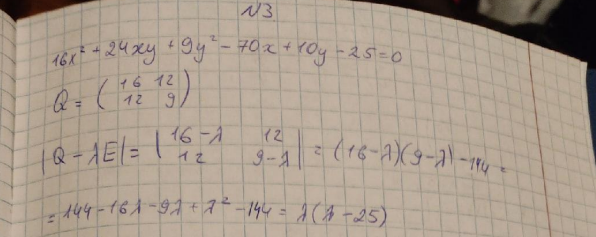 №3
16x² + 24xy + 9y² - 70x + 10y - 25 = 0
Q = ( 16 12
12 9 )
|Q - λE| = | 16 - λ 12
12 9 - λ | = (16 - λ)(9 - λ) - 144 =
= 144 - 16λ - 9λ + λ² - 144 = λ(λ - 25)